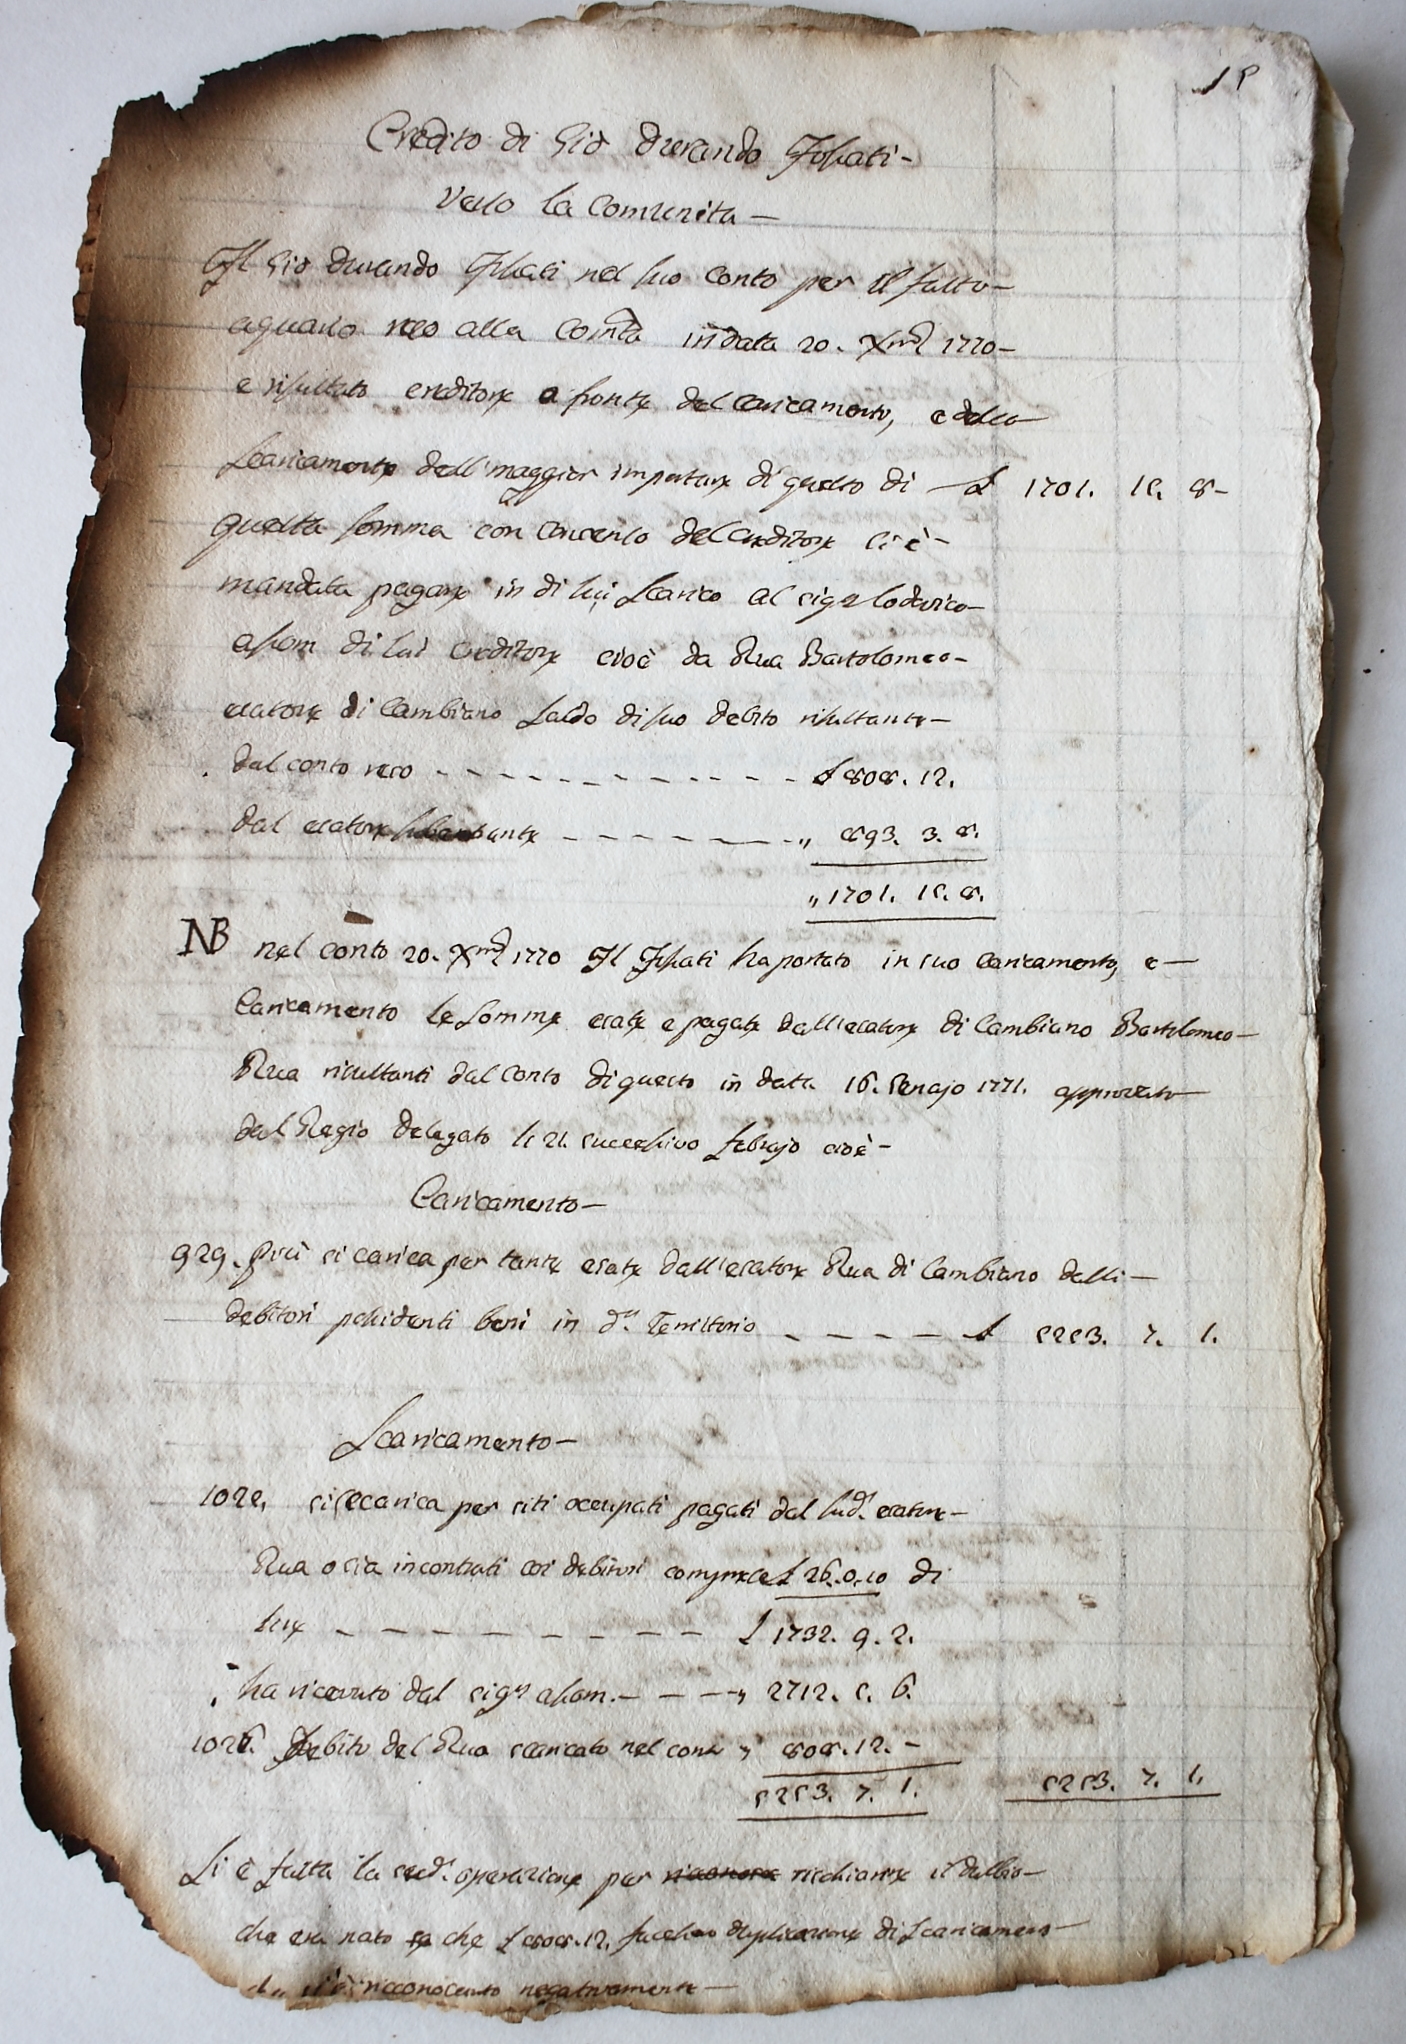 15
Credito di Giò Durando Fossati -
Verso la Comunita -
Il Giò Durando Fossati nel suo conto per il fatto -
reso alla Comtà in data 20. Xmbre 1770 -
e risultato creditore a fronte del caricamento, e dello
Scaricamento dell'maggior importare di questo di £ 1701. 15. 8 -
questa somma con consenso del Creditore si è -
mandata pagare in di lui Scarico al sigr Lodovico -
di lui Creditore cioè da Rua Bartolomeo -
esatore di Cambiano Saldo di suo debito risultante -
dal conto reso - - - - - - - - - - - - £ 808. 12.
dal esatore - - - - - - - - „ 893. 3. 8.
„ 1701. 15. 8.
NB nel conto 20. Xmbre 1770 Il Fossati ha portato in suo caricamento, e -
Caricamento le Somme esate e pagate dall'esatore di Cambiano Bartolomeo -
Rua risultanti dal conto di questo in data 16. Genajo 1771. approvato
dal Regio delegato li 21. successivo febrajo cioè -
Caricamento -
929. Più si carica per tante esate dall'esatore Rua di Cambiano dalli -
debitori possidenti beni in do. Territorio - - - - - £ 5253. 7. 1.
Scaricamento -
1025. si scarica per siti occupati pagati dal sudo. esatore -
Rua o sia incontrati coi debitori comprese £ 26. 0. 10 di
- - - - - - - - - £ 1732. 9. 2.
ha ricevuto dal sigr - - - „ 2712. 5. 6.
1026. Debito del Rua scaricato nel conto „ 808. 12. -
5253. 7. 1. 5253. 7. 1.
Si è fatta la sudo. operazione per rischiarire il dubbio -
che era nato che £ 808. 12. facesse duplicazione di Scaricamento -
riconosciuto negativamente -